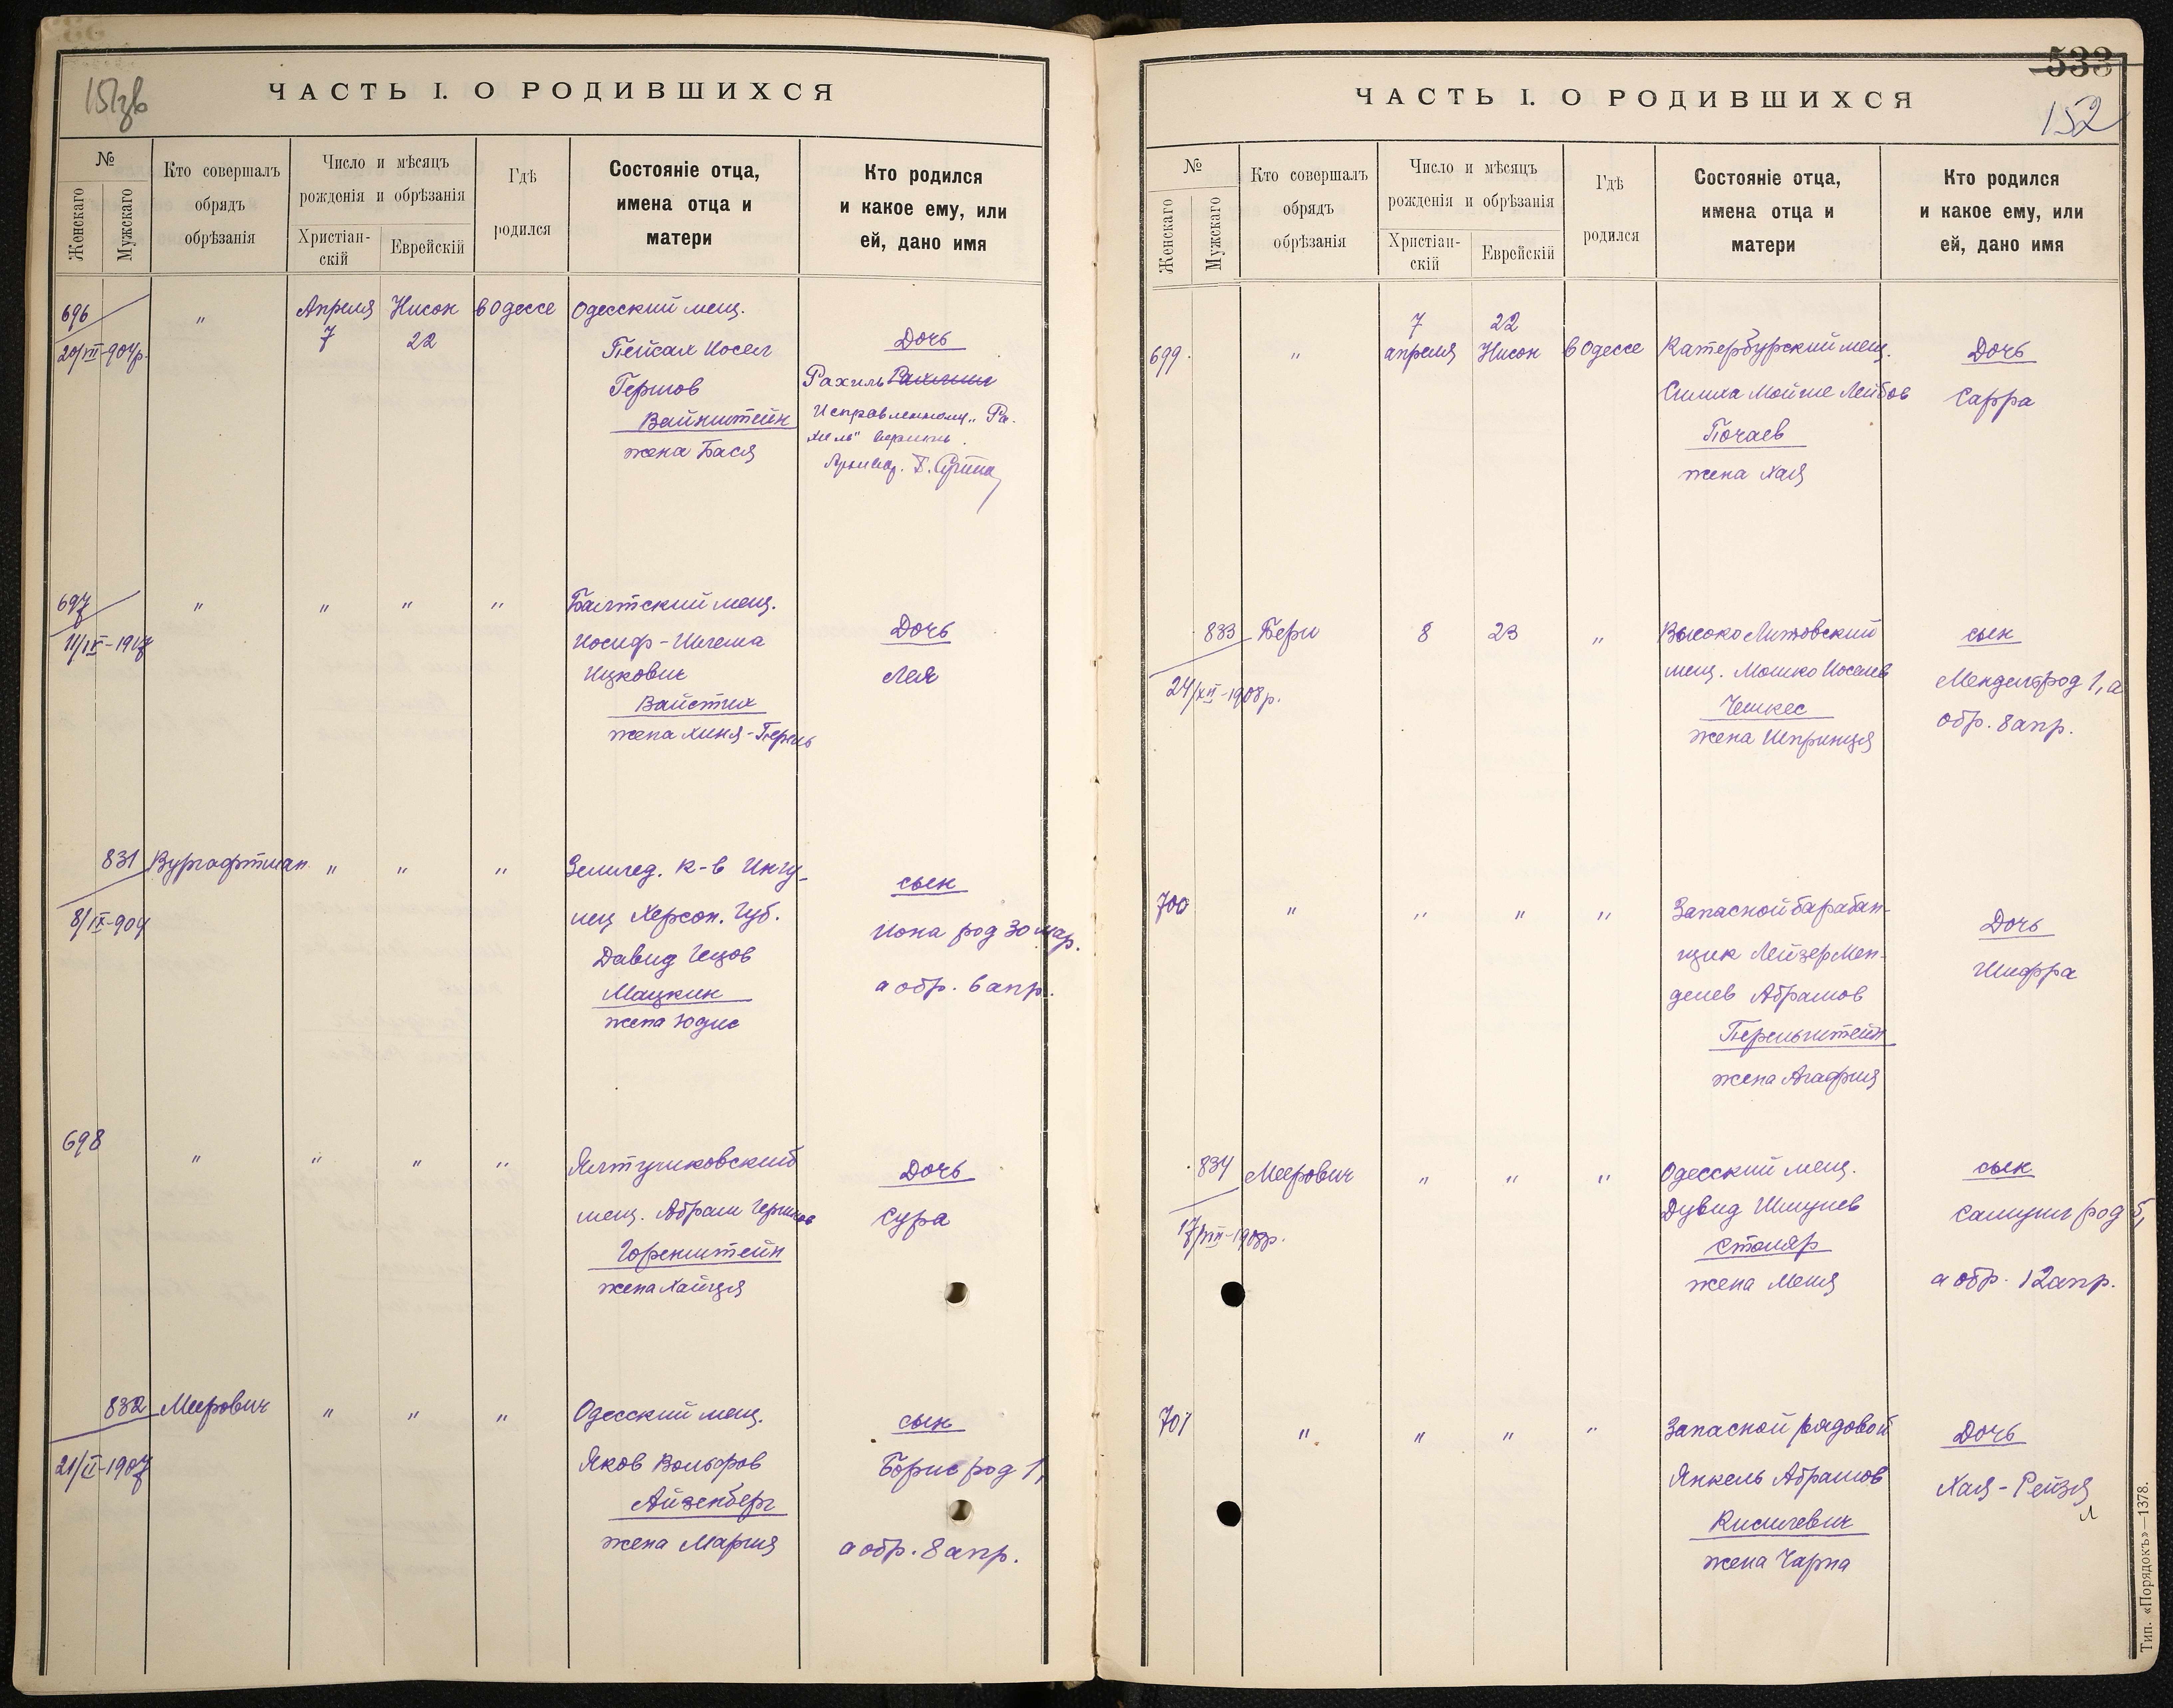 151зв
ЧАСТЬ I. О РОДИВШИХСЯ
№
Женскаго
Мужскаго
Кто совершалъ
обрядъ
обрѣзанія
Число и мѣсяцъ
рожденія и обрѣзанія
Христіан-
скій
Еврейскій
Гдѣ
родился
Состояніе отца,
имена отца и
матери
Кто родился
и какое ему, или
ей, дано имя
696 " Апреля Нисон в Одессе Одесский мещ.
7 22
Пейсах Иосел
Гершов
Вайнштейн
жена Бася
Дочь
Рахиль
Исправленному "Ра-
хиль" верить.
697 " " " " Балтский мещ.
11/IX-1917
Иосиф-
Ицкович
Вайстих
жена Хиня-Перель
Дочь
Лея
831 Вургафтман " " " Землед. к-в Ингу-
8/IX-909
лец Херсон. Губ.
Давид
Мацкин
жена Юдис
сын
Иона род 30 мар.
а обр. 6 апр.
698 " " " " Ялтушковский
мещ. Абрам Гершков
Горенштейн
жена Хайця
Дочь
Сура
832 Меерович " " " Одесский мещ.
21/II-1907
Яков Вольфов
Айзенберг
жена Мария
сын
Борис род 1,
а обр. 8 апр.
533
152
ЧАСТЬ I. О РОДИВШИХСЯ
№
Женскаго
Мужскаго
Кто совершалъ
обрядъ
обрѣзанія
Число и мѣсяцъ
рожденія и обрѣзанія
Христіан-
скій
Еврейскій
Гдѣ
родился
Состояніе отца,
имена отца и
матери
Кто родился
и какое ему, или
ей, дано имя
7 22
699 " апреля Нисон в Одессе Катербурский мещ.
Симха Мойше Лейбов
Почаев
жена Хая
Дочь
Сарра
833 Бери 8 23 " Высоко Литовский
24/XII-1908р.
мещ. Мошко Иоселев
Чешкес
жена Шпринця
сын
Мендель род 1, а
обр. 8 апр.
700 " " " " Запасной барабан-
щик Лейзер Мен-
делев Абрамов
Перельштейн
жена Агафия
Дочь
Шифра
834 Меерович " " " Одесский мещ.
17/VIII-1908р.
Дувид Шмулев
Столяр
жена Меня
сын
Самуил род 5,
а обр. 12 апр.
701 " " " " Запасной рядовой
Янкель Абрамов
Кисилевич
жена Чарна
Дочь
Хая-Рейзя
Тип. «Порядокъ»—1378.